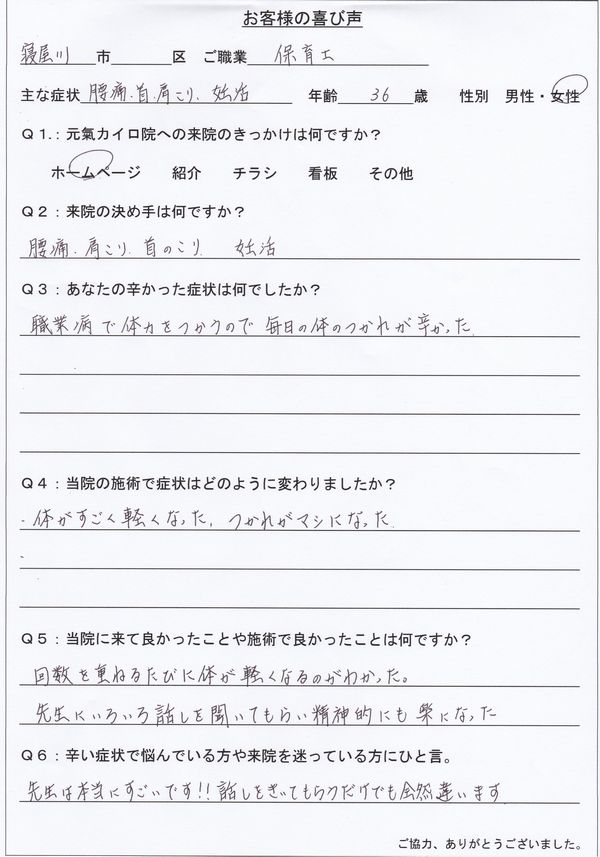 お客様の喜び声
寝屋川 市 区 ご職業 保育士
主な症状 腰痛、首、肩こり、妊活 年齢 36 歳 性別 男性・女性
Q1.：元氣カイロ院への来院のきっかけは何ですか？
ホームページ 紹介 チラシ 看板 その他
Q2：来院の決め手は何ですか？
腰痛、肩こり、首のこり、 妊活
Q3：あなたの辛かった症状は何でしたか？
職業病で体力をつかうので毎日の体のつかれが辛かった、
Q4：当院の施術で症状はどのように変わりましたか？
・体がすごく軽くなった、つかれがマシになった、
Q5：当院に来て良かったことや施術で良かったことは何ですか？
回数を重ねるたびに体が軽くなるのがわかった。
先生にいろいろ話しを聞いてもらい精神的にも楽になった
Q6：辛い症状で悩んでいる方や来院を迷っている方にひと言。
先生は本当にすごいです!!話しをきいてもらうだけでも全然違います
ご協力、ありがとうございました。